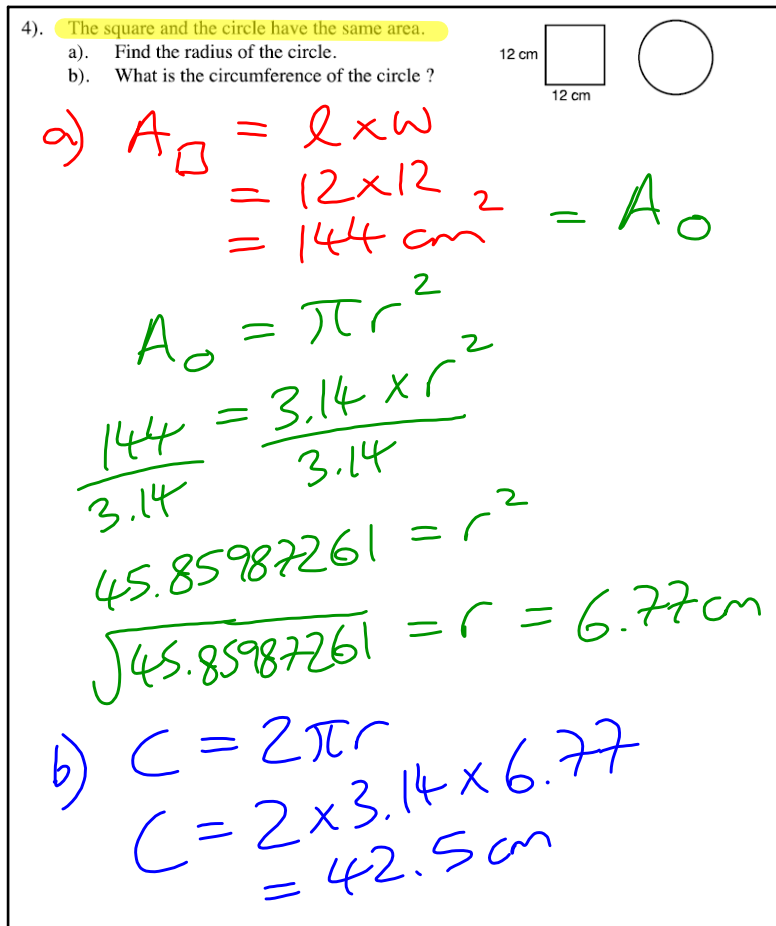 4). The square and the circle have the same area.
a). Find the radius of the circle.
b). What is the circumference of the circle ?
12 cm
12 cm
a) A□ = l x w
= 12 x 12
= 144 cm² = A○
A○ = πr²
144/3.14 = 3.14 x r²/3.14
45.85987261 = r²
√45.85987261 = r = 6.77 cm
b) C = 2πr
C = 2 x 3.14 x 6.77
= 42.5 cm